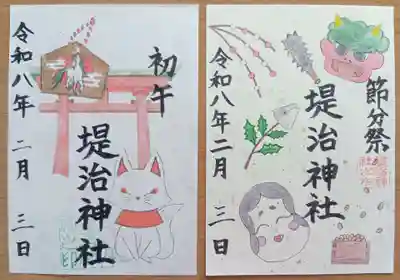 初午
堤治神社
令和八年 二月 三日
節分祭
堤治神社
令和八年 二月 三日